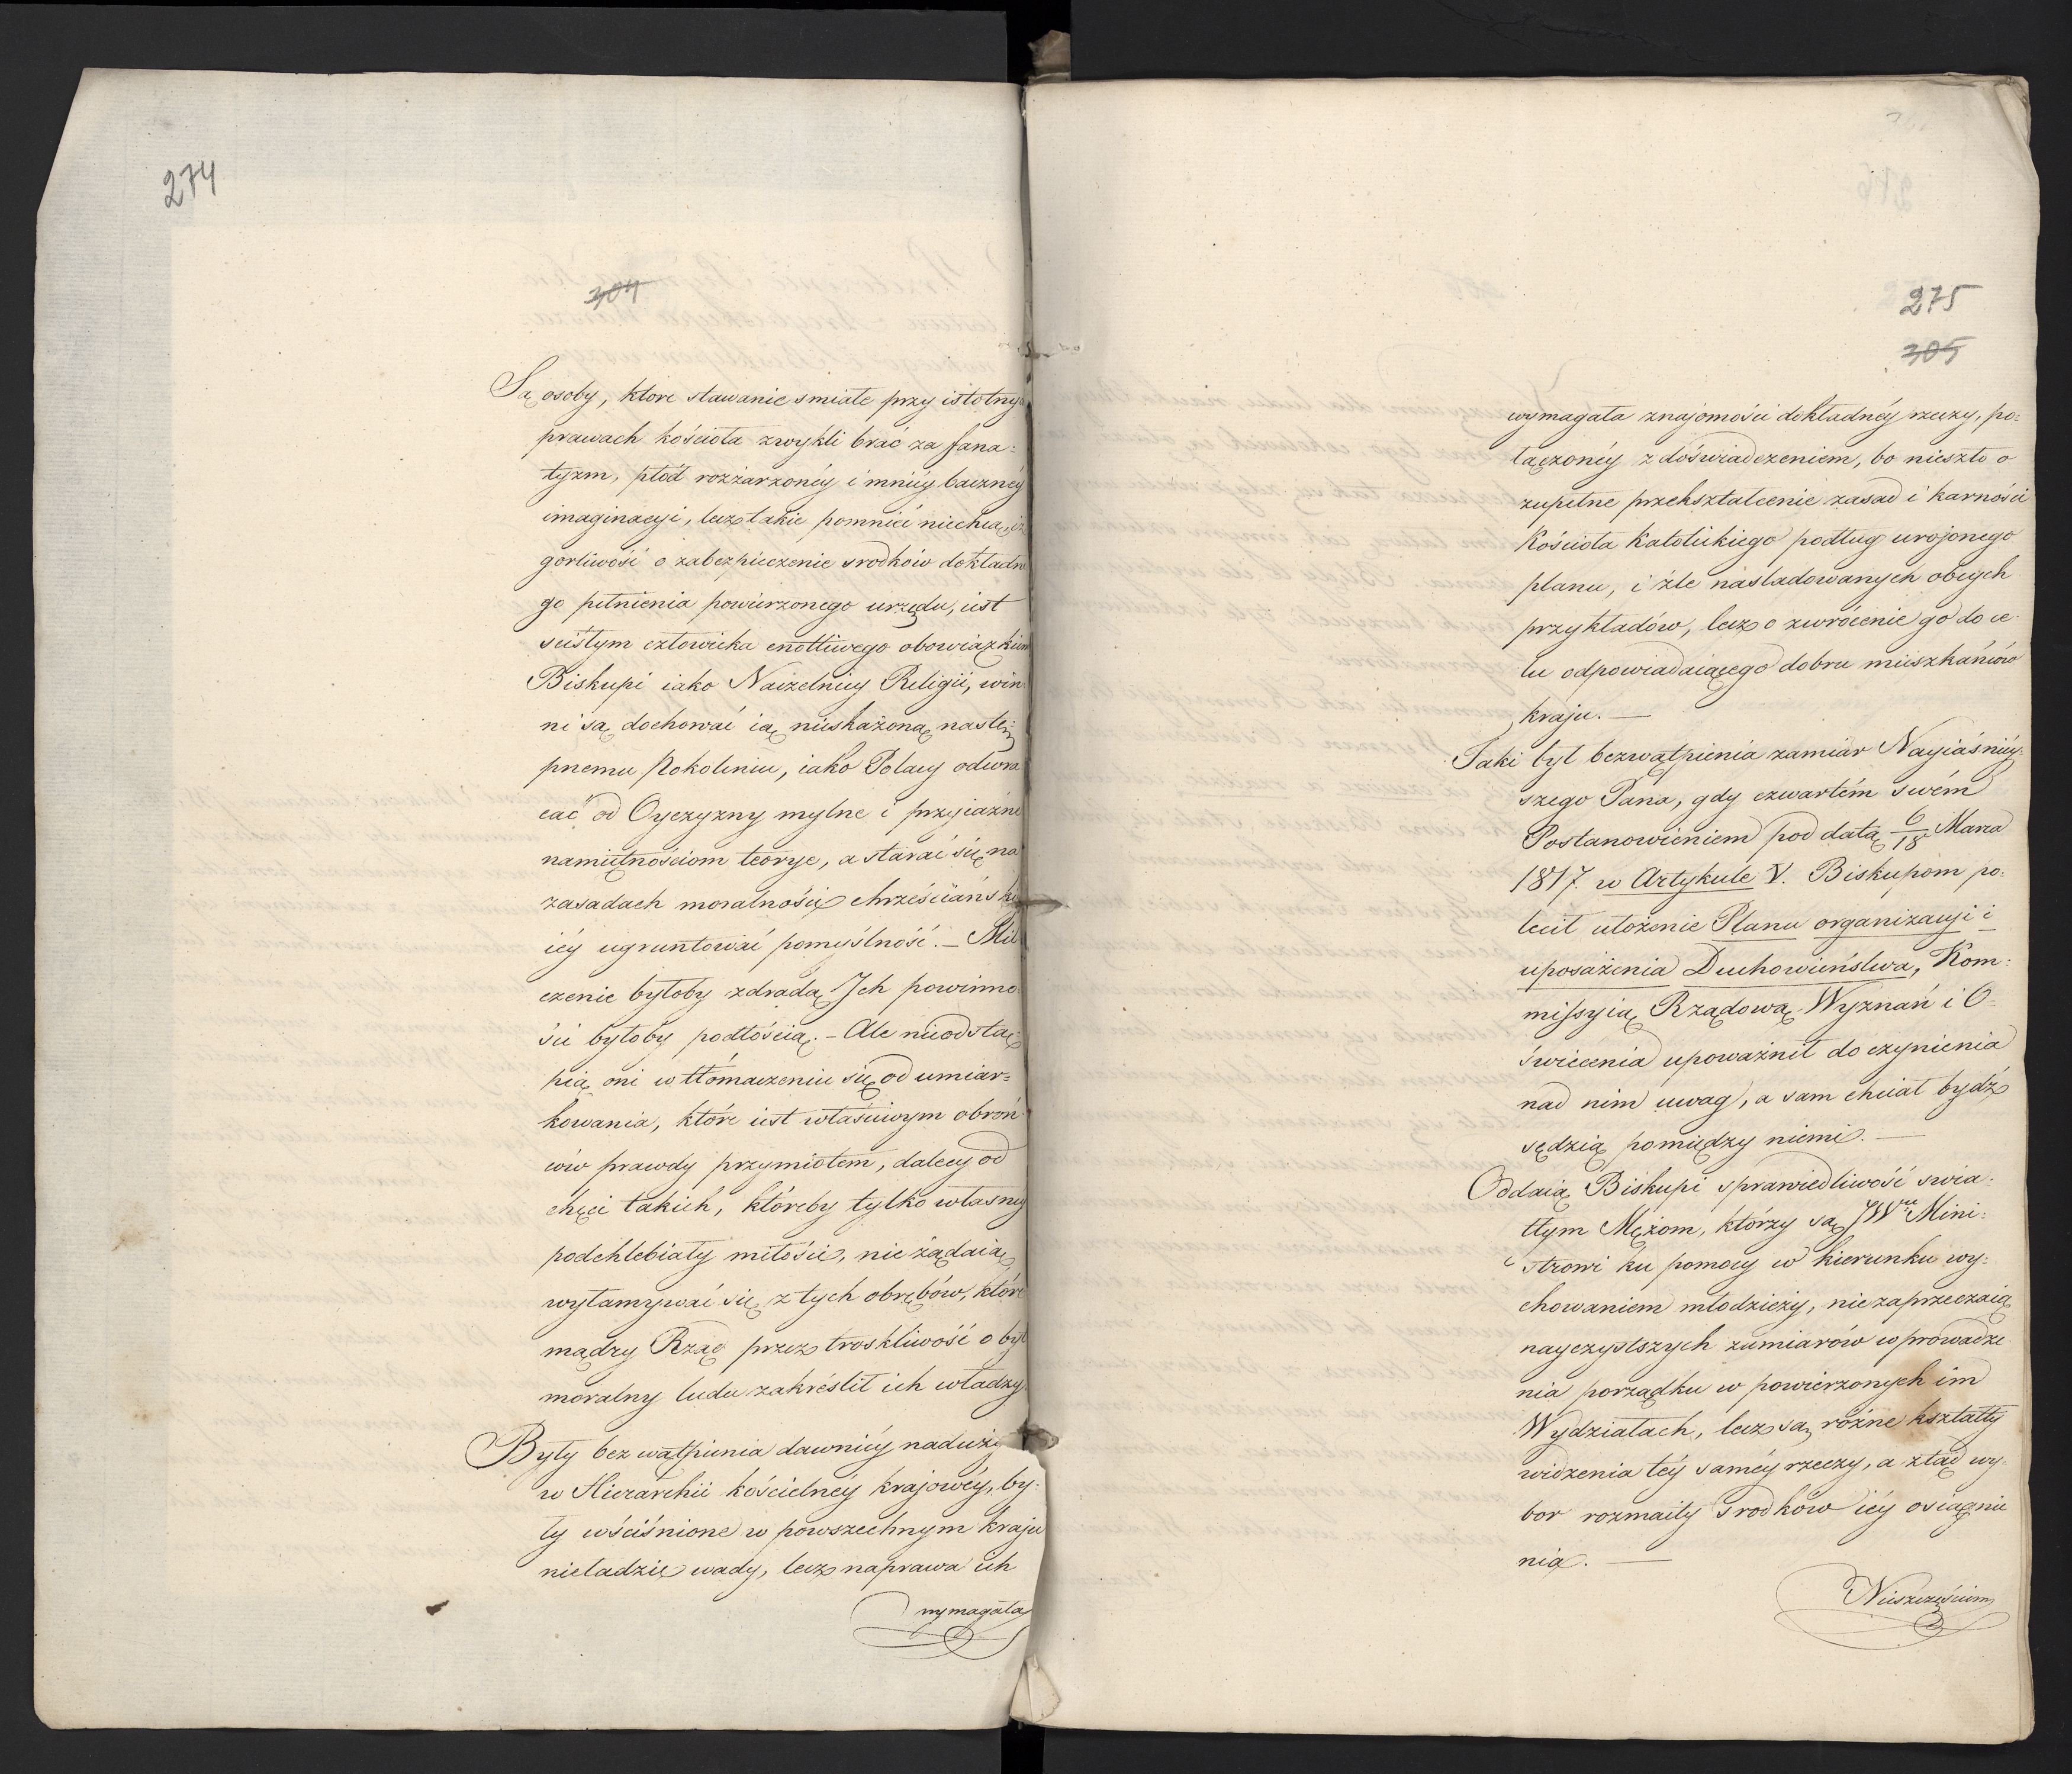 274
304
Są osoby, ktore stawanie smiałe przy istotnych
prawach kościoła zwykli brać za fana=
tyzm, płód rozżarzonéy i mniéy baczney
imaginacyi, lecz takie pomnieć niechcą, iż
gorliwość o zabezpieczenie srodków dokładne
go pełnienia powierzonego urzędu, iest
scisłym człowieka cnotliwego obowiązkiem
Biskupi iako Naczelnicy Religii, win
ni są dochować ią nieskażoną nastę=
pnemu Pokoleniu, iako Polacy odwra
cać od Oyczyzny mylne i przyiazne
namiętnościom teorye, a starać się na
zasadach moralności chrześciańskiéy
iéy ugruntować pomyślność. – Mil
czenie byłoby zdradą Ich powinno
ści byłoby podłością. – Ale nieodstą=
pią oni w tłómaczeniu się od umiar=
kowania, któré iest właściwym obroń
ców prawdy przymiotem, dalecy od
chęci takich, któreby tylko własney
podchlebiały miłości, nie żądaią
wyłamywać się z tych obrębów, które
mądry Rząd przez troskliwość o byt
moralny ludu zakréślił ich władzy
Były bez wątpienia dawniéy naduży
w Hierarchii kościelnéy krajowéy, by=
ły wściśnione w powszechnym kraju
nieładzie wady, lecz naprawa ich
wymagała
275
305
wymagała znajomości dokładnéy rzeczy, po=
łączonéy z doświadczeniem, bo nieszło o
zupełne przekształcenie zasad i karności
Kościoła Katolickiego podług urojonego
planu, i źle násladowanych obcych
przykładów, lecz o zwrócenie go do ce
lu odpowiadaiącego dobru mieszkańców
kraju. —
Taki był bezwątpienia zamiar Nayiaśniéy=
szego Pana, gdy czwartém swém
Postanowieniem pod datą 6/18 Marca
1817. w Artykule V. Biskupom po=
lecił ułożenie Planu organizacyi i
uposażenia Duchowieństwa, Kom=
missyią Rządową Wyznań i O=
świecenia upoważnił do czynienia
nad nim uwag, a sam chciał bydź
sędzią pomiędzy niemi. —
Oddaią Biskupi sprawiedliwość swia=
tłym Mężom, którzy są JWmu Mini=
strowi ku pomocy w kierunku wy=
chowaniem młodzieży, niezaprzeczaią
nayczystszych zamiarów wprowadze
nia porządku w powierzonych im
Wydziałach, lecz są rózne kształty
widzenia téy saméy rzeczy, a ztąd wy=
bor rozmaity srodków iéy osiągnie
nia. —
Nieszczęściem